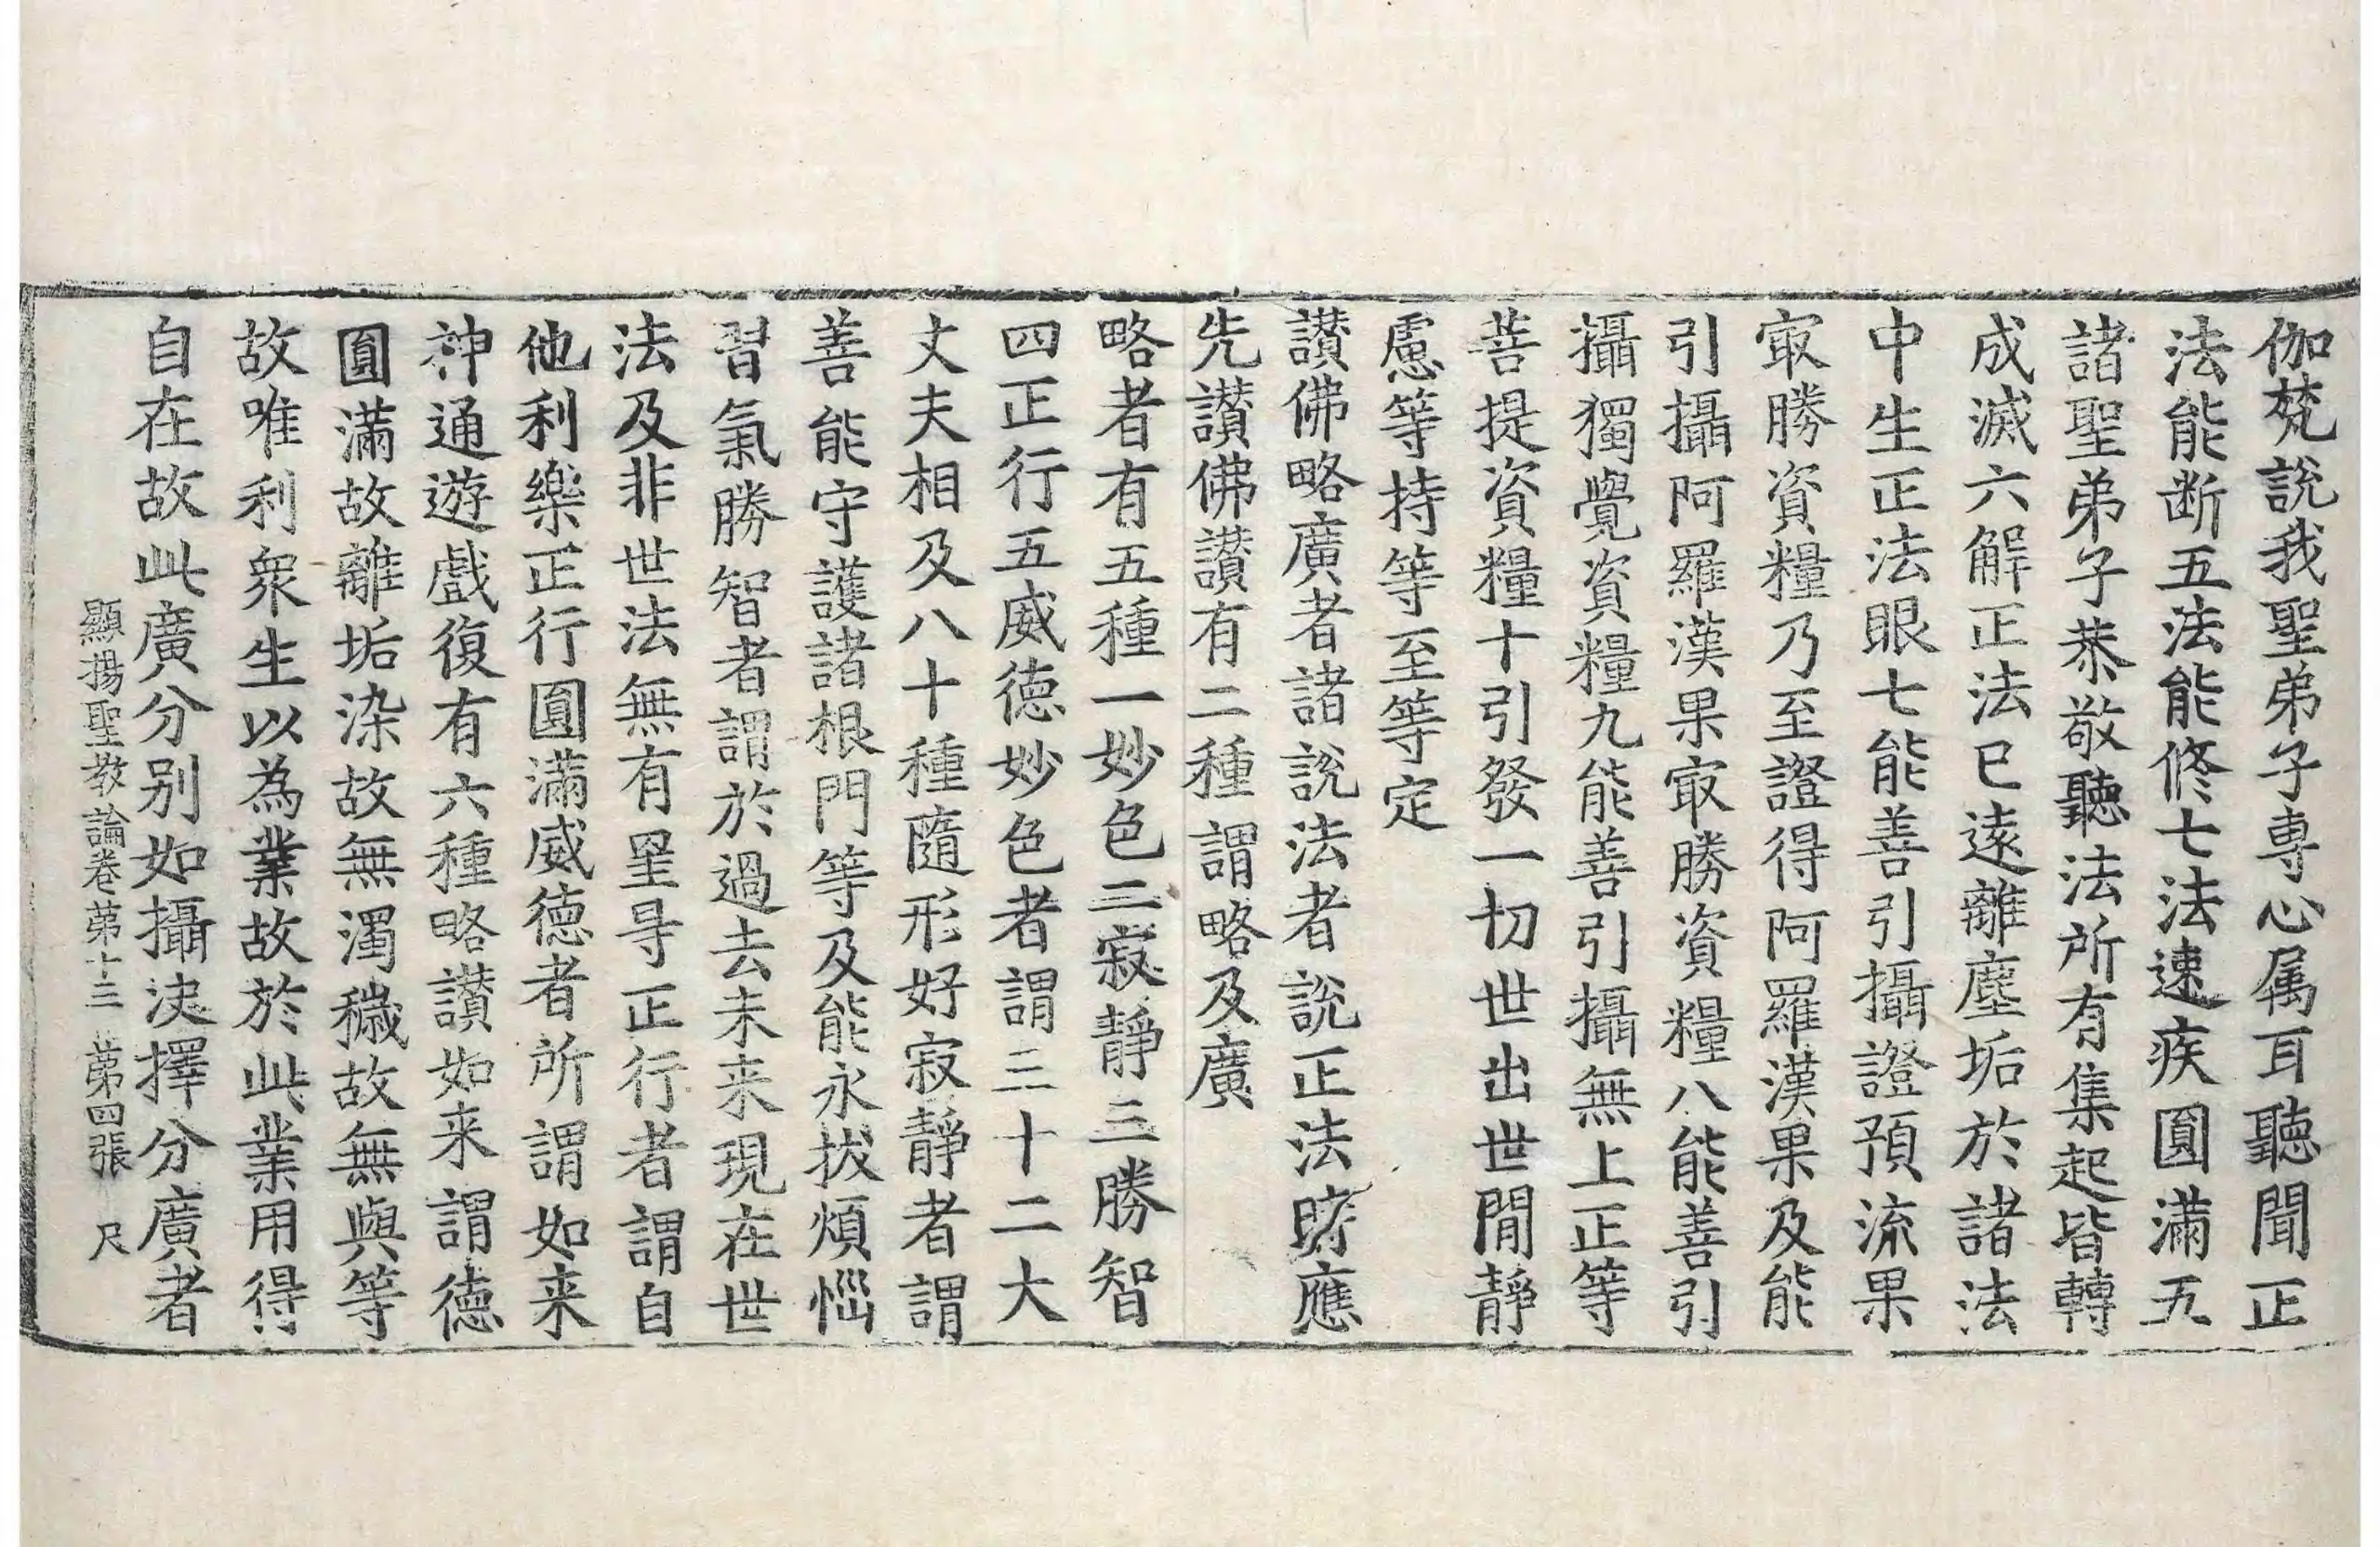 伽梵說我聖弟子專心属耳聽聞正
法能断五法能修七法速疾圓滿五
諸聖弟子恭敬聽法所有集起皆轉
成滅六解正法已遠離塵垢於諸法
中生正法眼七能善引攝證預流果
㝡勝資糧乃至證得阿羅漢果及能
引攝阿羅漢果㝡勝資糧八能善引
攝獨覺資糧九能善引攝無上正等
菩提資糧十引發一切世出世閒靜
慮等持等至等定
讃佛略廣者諸說法者說正法時應
先讃佛讃有二種謂略及廣
略者有五種一妙色二寂靜三勝智
四正行五威德妙色者謂三十二大
丈夫相及八十種隨形好寂靜者謂
善能守護諸根門等及能永拔煩惱
習氣勝智者謂於過去未来現在世
法及非世法無有罣㝵正行者謂自
他利樂正行圓滿威德者所謂如来
神通遊戲復有六種略讃如来謂德
圓滿故離垢染故無濁穢故無與等
故唯利衆生以為業故於此業用得
自在故此廣分别如攝決擇分廣者
顯揚聖教論卷苐十三 苐四張 尺